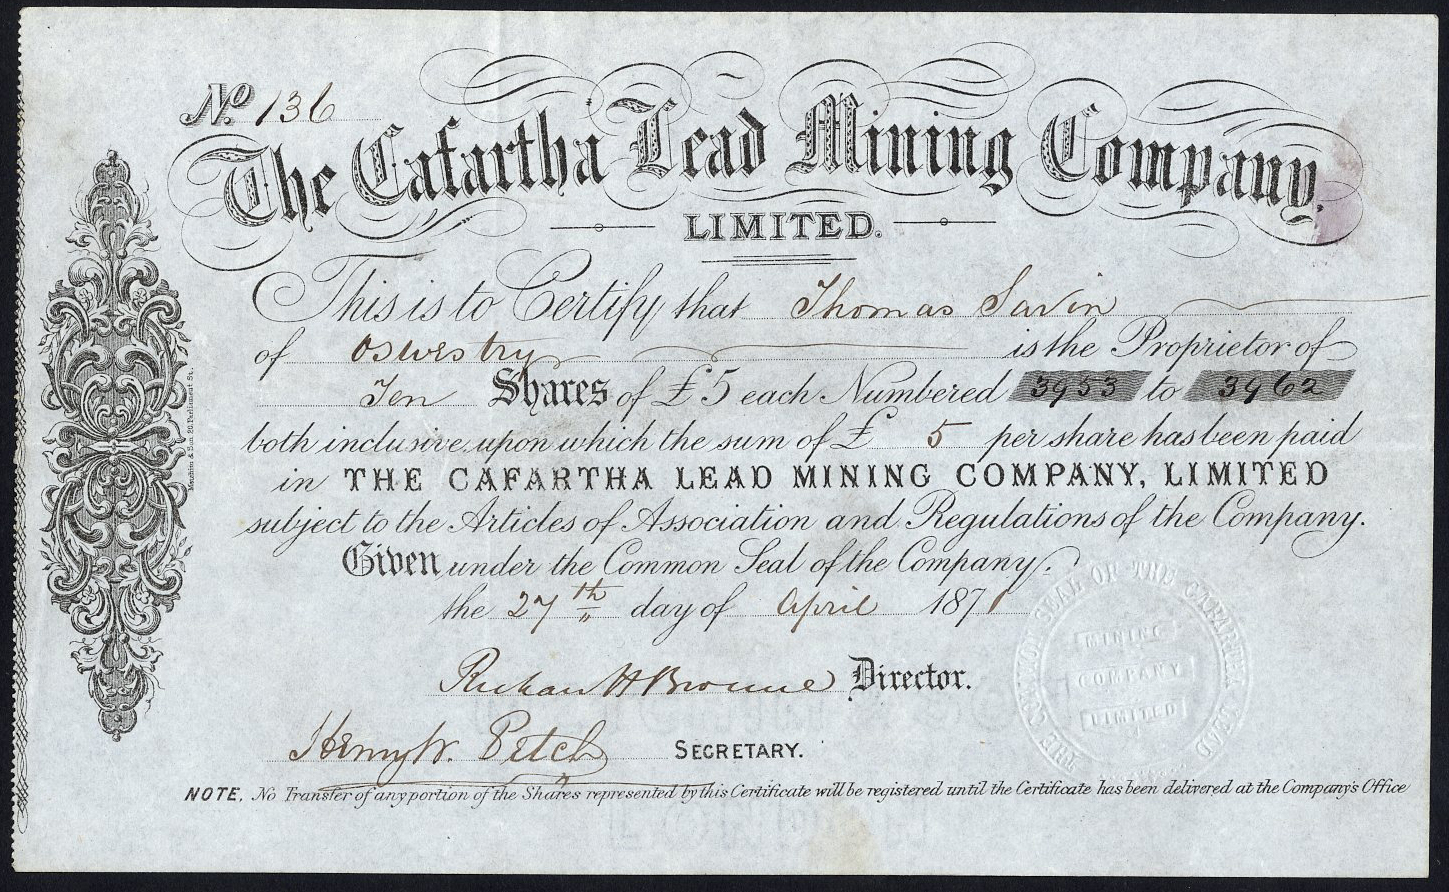 No. 136
The Cafartha Lead Mining Company,
LIMITED.
This is to Certify that Thomas Savin
of Oswestry is the Proprietor of
Ten Shares of £5 each Numbered 3953 to 3962
both inclusive upon which the sum of £ 5 per share has been paid
in THE CAFARTHA LEAD MINING COMPANY, LIMITED
subject to the Articles of Association and Regulations of the Company.
Given under the Common Seal of the Company,
the 27th day of April 1871
Richard H Browne Director.
Henry W. Petch SECRETARY.
NOTE, No Transfer of any portion of the Shares represented by this Certificate will be registered until the Certificate has been delivered at the Company's Office
THE COMMON SEAL OF THE CAFARTHA LEAD
MINING
COMPANY
LIMITED
& Son 26 Parliament St.